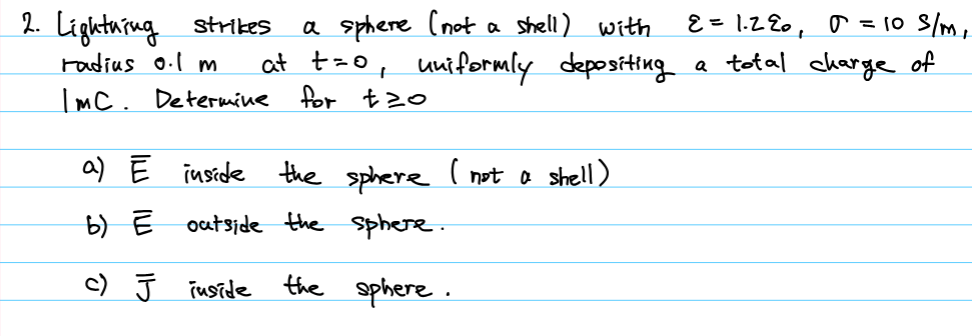 2. Lightning strikes a sphere (not a shell) with ε = 1.2 ε₀, σ = 10 S/m,
radius 0.1 m at t=0, uniformly depositing a total charge of
1mC. Determine for t≥0
a) E̅ inside the sphere (not a shell)
b) E̅ outside the sphere.
c) J̅ inside the sphere.